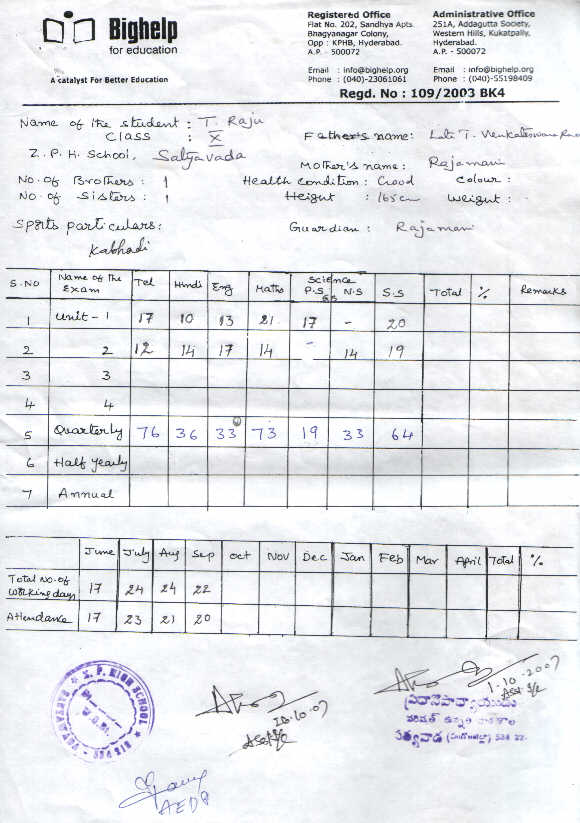 Bighelp
for education
A catalyst For Better Education
Registered Office
Flat No. 202, Sandhya Apts.
Bhagyanagar Colony,
Opp : KPHB, Hyderabad.
A.P. - 500072
Email : info@bighelp.org
Phone : (040)-23061061
Administrative Office
251A, Addagutta Society,
Western Hills, Kukatpally,
Hyderabad.
A.P. - 500072
Email : info@bighelp.org
Phone : (040)-55198409
Regd. No : 109/2003 BK4
Name of the student : T. Raju
Class : X
Father's name: Late T. Venkateswara Rao
Z. P. H. School, Satyavada
Mother's name : Rajamani
No. of Brothers : 1
Health condition : Good Colour :
No. of Sisters : 1
Height : 165cm Weight : -
Sports particulars:
Guardian : Rajamani
Kabhadi
S.NO Name of the Exam Tel Hindi Eng Maths Science P.S N.S S.S Total % Remarks
1 Unit - 1 17 10 13 21 17 - 20
2 2 12 14 17 14 - 14 19
3 3
4 4
5 Quarterly 76 36 33 73 19 33 64
6 Half yearly
7 Annual
June July Aug Sep Oct Nov Dec Jan Feb Mar April Total %
Total No. of working days 17 24 24 22
Attendance 17 23 21 20
Z. P. HIGH SCHOOL
10.07
1.10.2007
AEDP